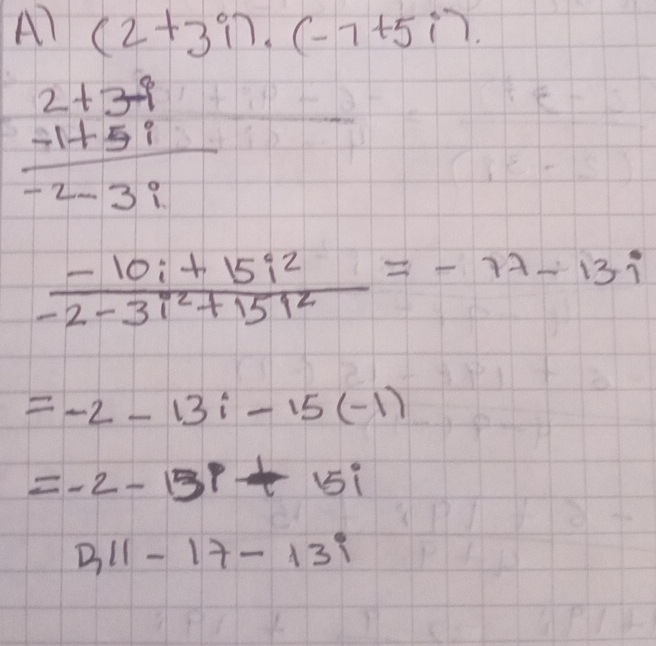 A) (2+3i). (-1+5i).
2+3i
-1+5i
-2-3i.
-10i+15i²
-2-3i²+15i² = -77-13i
=-2-13i-15(-1)
=-2-13i+15i
R// -17-13i